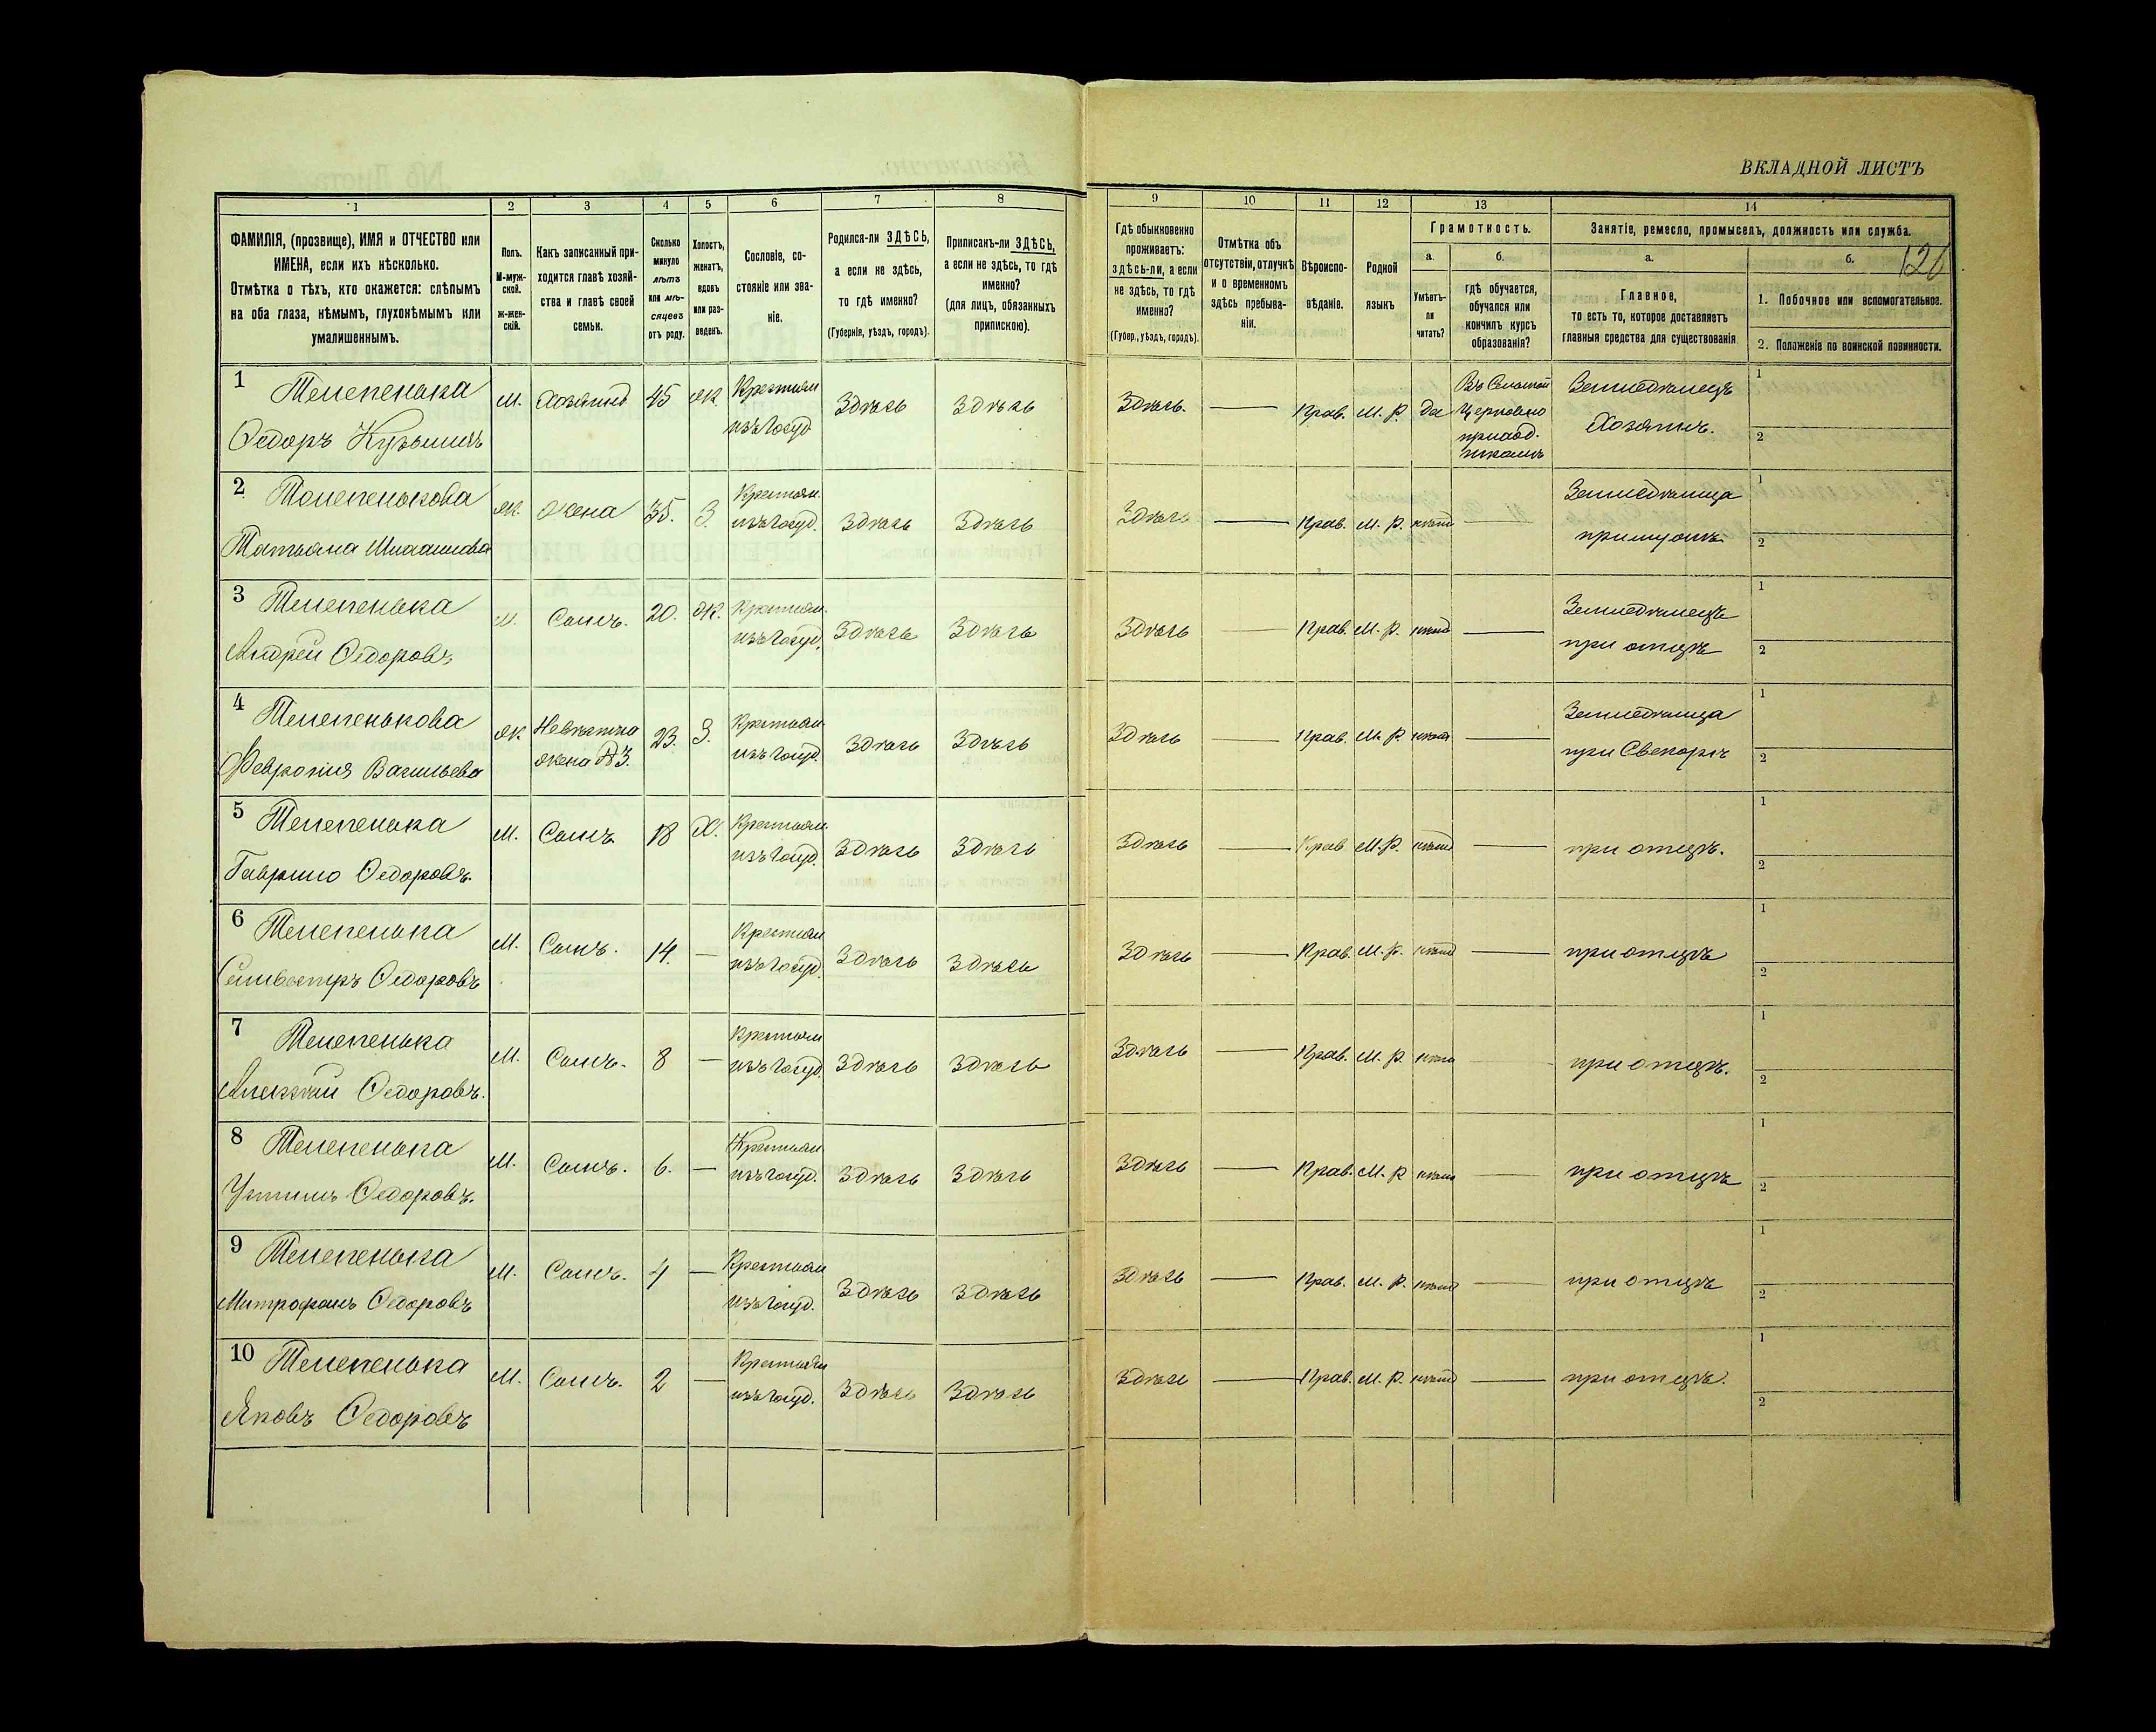 ВКЛАДНОЙ ЛИСТЪ
126
1 2 3 4 5 6 7 8 9 10 11 12 13 14
ФАМИЛІЯ, (прозвище), ИМЯ и ОТЧЕСТВО или
ИМЕНА, если ихъ нѣсколько.
Отмѣтка о тѣхъ, кто окажется: слѣпымъ
на оба глаза, нѣмымъ, глухонѣмымъ или
умалишеннымъ.
Полъ.
М-муж-
ской.
ж-жен-
скій.
Какъ записанный при-
ходится главѣ хозяй-
ства и главѣ своей
семьи.
Сколько
минуло
лѣтъ
или мѣ-
сяцевъ
отъ роду.
Холостъ,
женатъ,
вдовъ
или раз-
веденъ.
Сословіе, со-
стояніе или зва-
ніе.
Родился-ли ЗДѢСЬ,
а если не здѣсь,
то гдѣ именно?
(Губернія, уѣздъ, городъ).
Приписанъ-ли ЗДѢСЬ,
а если не здѣсь, то гдѣ
именно?
(для лицъ, обязанныхъ
припискою).
Гдѣ обыкновенно
проживаетъ:
здѣсь-ли, а если
не здѣсь, то гдѣ
именно?
(Губер., уѣздъ, городъ).
Отмѣтка объ
отсутствіи, отлучкѣ
и о временномъ
здѣсь пребыва-
ніи.
Вѣроиспо-
вѣданіе.
Родной
языкъ
Грамотность.
а.
Умѣетъ-
ли
читать?
б.
гдѣ обучается,
обучался или
кончилъ курсъ
образованія?
Занятіе, ремесло, промыселъ, должность или служба.
а.
Главное,
то есть то, которое доставляетъ
главныя средства для существованія
б.
1. Побочное или вспомогательное.
2. Положеніе по воинской повинности.
1 Телепенька
Федоръ Кузьминъ
М. Хозяинъ 45 Ж. Крестьян. изъ Госуд. Здѣсь Здѣсь
Здѣсь. — Прав. М. Р. да
Церковно
приход.
Земледѣлецъ
Хозяинъ.
1
2
2 Телепенькова
Татьяна
Ж. Жена 35. З. Крестьян. изъ Госуд. Здѣсь Здѣсь
Здѣсь — Прав. М. Р. нѣтъ —
Земледѣлица
при мужѣ
1
2
3 Телепенька
Андрей Федоровъ
М. Сынъ. 20. Ж. Крестьян. изъ Госуд. Здѣсь Здѣсь
Здѣсь — Прав. М. Р. нѣтъ —
Земледѣлецъ
при отцѣ
1
2
4 Телепенькова
Феврония Васильева
Ж Невѣстка
жена №3. 23. З. Крестьян. изъ Госуд. Здѣсь Здѣсь
Здѣсь — Прав. М. Р. нѣтъ —
Земледѣлица
при Свекорѣ
1
2
5 Телепенька
Гаврило Федоровъ.
М. Сынъ 18 Х. Крестьян. изъ Госуд. Здѣсь Здѣсь
Здѣсь — Прав М. Р. нѣтъ — при отцѣ.
1
2
6 Телепенька
Сильвестръ Федоровъ
М. Сынъ. 14. — Крестьян изъ Госуд. Здѣсь Здѣсь
Здѣсь — Прав. М. Р. нѣтъ — при отцѣ
1
2
7 Телепенька
Алексѣй Федоровъ.
М. Сынъ. 8 — Крестьян изъ Госуд. Здѣсь Здѣсь
Здѣсь — Прав. М. Р. нѣтъ — при отцѣ.
1
2
8 Телепенька
Устимъ Федоровъ.
М. Сынъ. 6. — Крестьян изъ Госуд. Здѣсь Здѣсь
Здѣсь — Прав. М. Р нѣтъ — при отцѣ
1
2
9 Телепенька
Митрофанъ Федоровъ
М. Сынъ. 4 — Крестьян изъ Госуд. Здѣсь Здѣсь
Здѣсь — Прав. М. Р. нѣтъ — при отцѣ
1
2
10 Телепенька
Яковъ Федоровъ
М. Сынъ. 2 — Крестьян изъ Госуд. Здѣсь Здѣсь
Здѣсь — Прав. М. Р. нѣтъ — при отцѣ.
1
2